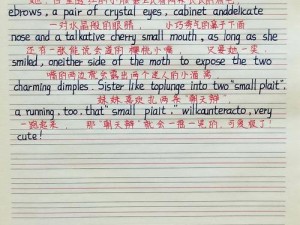 ebrows, a pair of crystal eyes, cabinet anddelicate
一对水晶般的眼睛， 小巧秀气的鼻子下面
nose and a talkative cherry small mouth, as long as she
还有一张能说会道的樱桃小嘴 只要她一笑
smiled, oneither side of the moth to expose the two
嘴的两边就会露出两个迷人的小酒窝
charming dimples. Sister like toplunge into two "small plait".
妹妹喜欢扎两条"朝天辫"
a running, too, that "small piait," willcounteracto, very
一跑起来， 那"朝天辫"就会一摇一晃的，可爱极了！
cute!